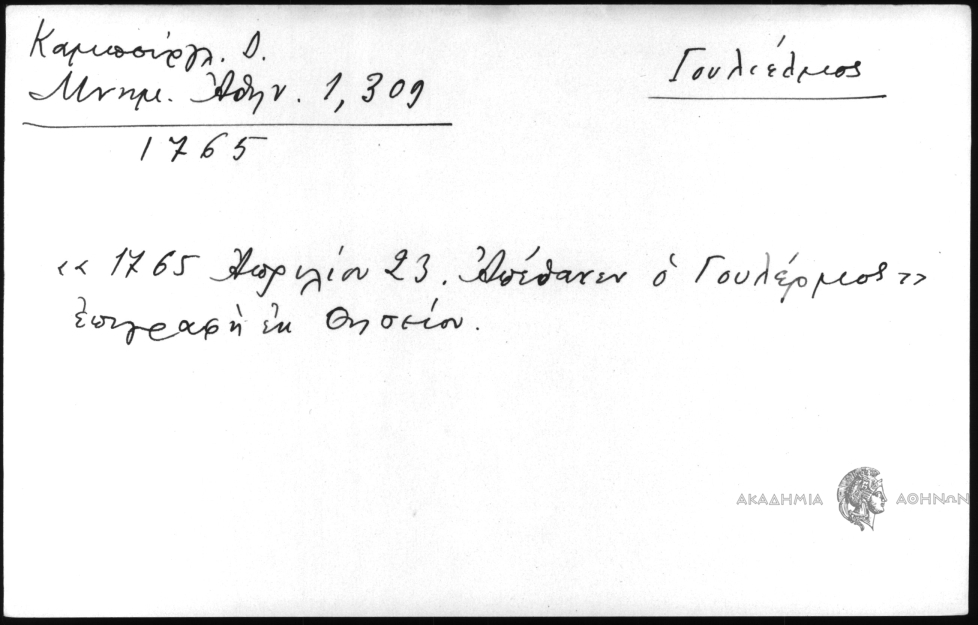 Καμπούργλ. Δ.
Μνημ. Ἀθην. 1, 309
1765
Γουλιέλμος
«1765 Ἀπριλίου 23. Ἀπέθανεν ὁ Γουλέρμος»
ἐπιγραφὴ ἐκ Θησείου.
ΑΚΑΔΗΜΙΑ ΑΘΗΝΩΝ